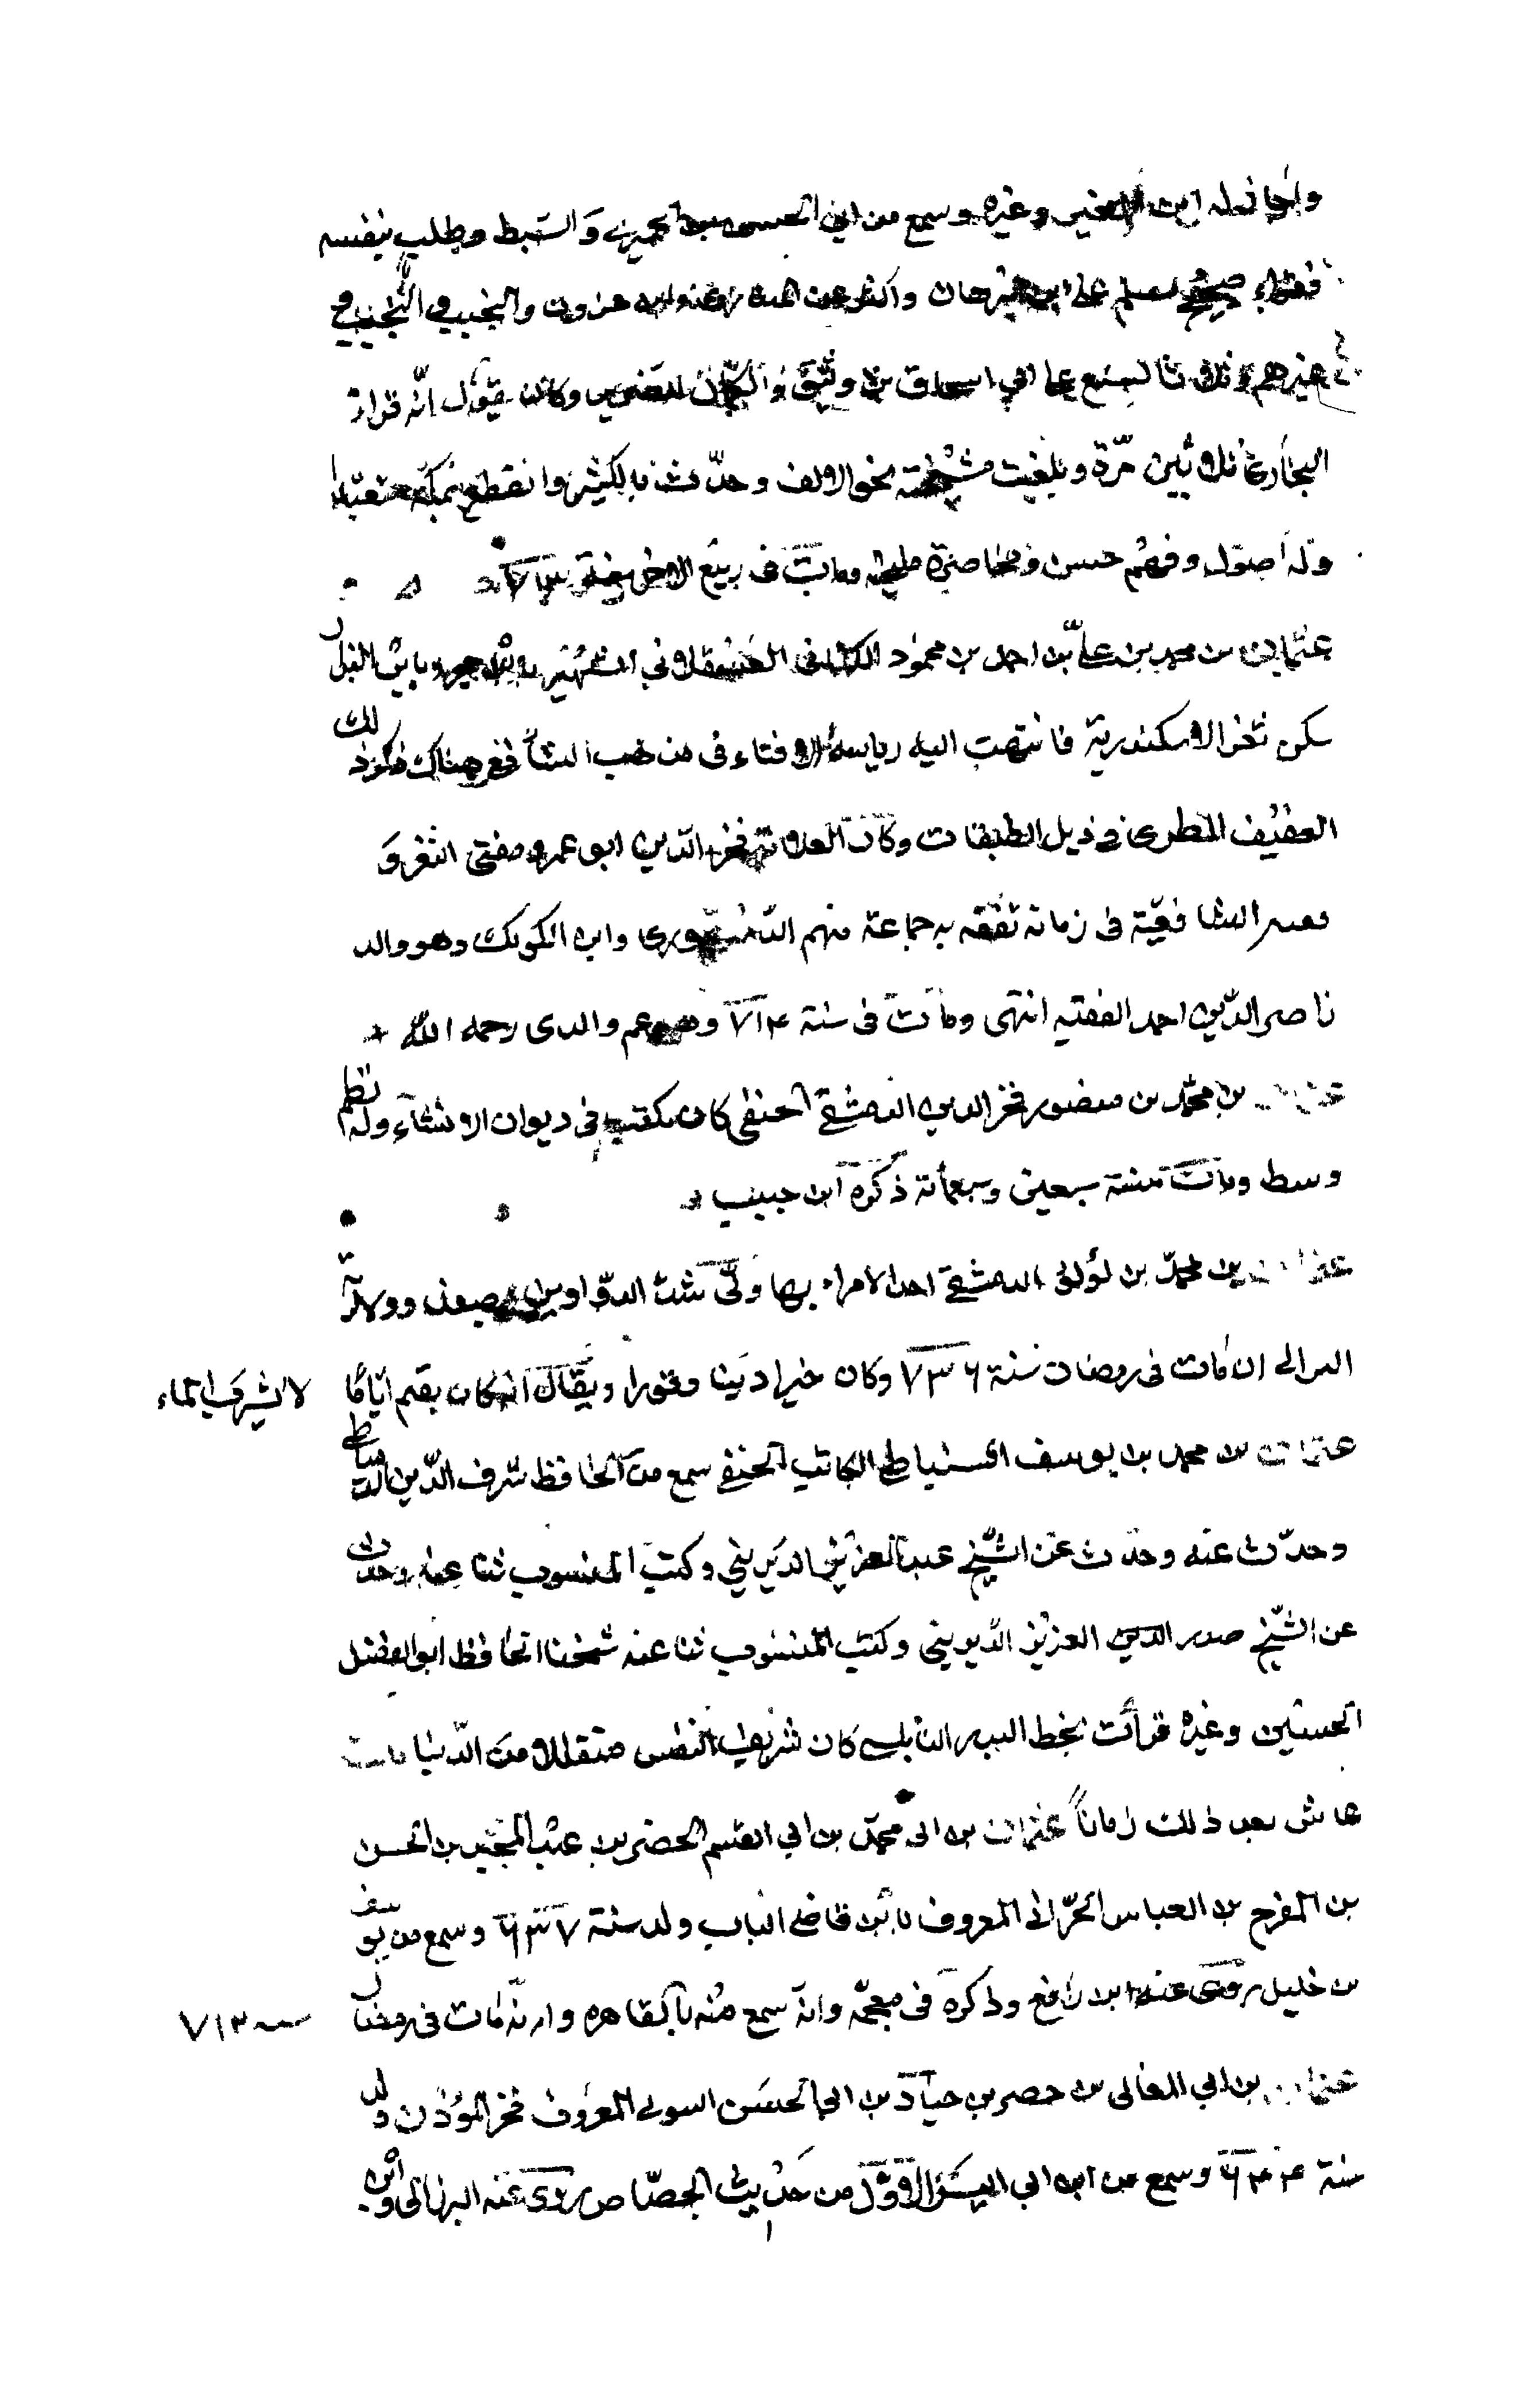 واجاز له ابن وغيره وسمع من ابي الحسن بن الجميزى والسبط وطلب بنفسه
فقراء صحيح مسلم على ابن واكثر عن ابن عزون والنجيب
غيرهم وتلا بالسبع على ابي اسحاق بن وثيق والكمال الضرير وكان يقول انه قراء
البخارى ثلاثين مرّة وبلغت مشيخته نحو الالف وحدّث بالكثير وانقطع بمكة متعبدا
وله اصول وفهم حسن ومحاضرة مليحة ومات فى ربيع الاخر سنة
عثمان بن محمد بن علىّ بن احمد بن محمود الكنانى العسقلاني الشهير بابن حجر وبابن البزار
سكن ثغر الاسكندرية فانتهت اليه رياسة الافتاء فى مذهب الشافعى هناك ذكر ذلك
العفيف المطرى فى ذيل الطبقات وكان العلامة فخر الدين ابو عمرو مفتى الثغر و
الشافعيّة فى زمانه تفقه به جماعة منهم الدمنهورى وابن الكويك وهو والد
ناصر الدّين احمد الفقيه انتهى ومات فى سنة ٧١٤ وهو عم والدى رحمه الله
عثمان بن محمّد بن منصور فخر الدين الدمشقى الحنفى كان يكتب فى ديوان الانشاء وله نظم
وسط ومات سنة سبعين وسبعمائة ذكره ابن حبيب
عثمان بن محمّد بن لؤلؤ الدمشقى احد الامراء بها ولّى شد الدّواوين وولاية
البر الى ان مات فى رمضان سنة ٧٣٦ وكان خيرا دينا وقورا ويقال انه كان يقيم ايّاما لا يشرب الماء
عثمان بن محمد بن يوسف السنباطى الكاتب الحنفى سمع من الحافظ شرف الدّين الدمياطى
وحدّث عنه وحدث عن الشّيخ عبد العزيز الديرينى وكتب المنسوب ثنا عنه وحدث
عن الشّيخ صدر الدين العزيز الدّيرينى وكتب المنسوب ثنا عنه شيخنا الحافظ ابو الفضل
الحسين وغيره قرأت بخط البدر النابلسى كان شريف النفس متقللا من الدّنيا مات
عاش بعد ذلك زماناً عثمان بن ابى محمّد بن ابي القسم الخضر بن عبد المجيد بن الحسن
بن المفرج بن العباس الحرّانى المعروف بابن قاضى الباب ولد سنة ٦٣٧ وسمع من يوسف
بن خليل روى عنه ابن رافع وذكره فى معجمه وانه سمع منه بالقاهره وانه مات فى رمضان سنه ٧١٣
عثمان بن ابي المعالى بن خضر بن حياد بن ابى الحسن المعروف فخر المؤذن ولد
سنة ٦٤٤ وسمع من ابن ابي اليسر الاوّل من حديث الجصّاص روى عنه البرزالى وابن